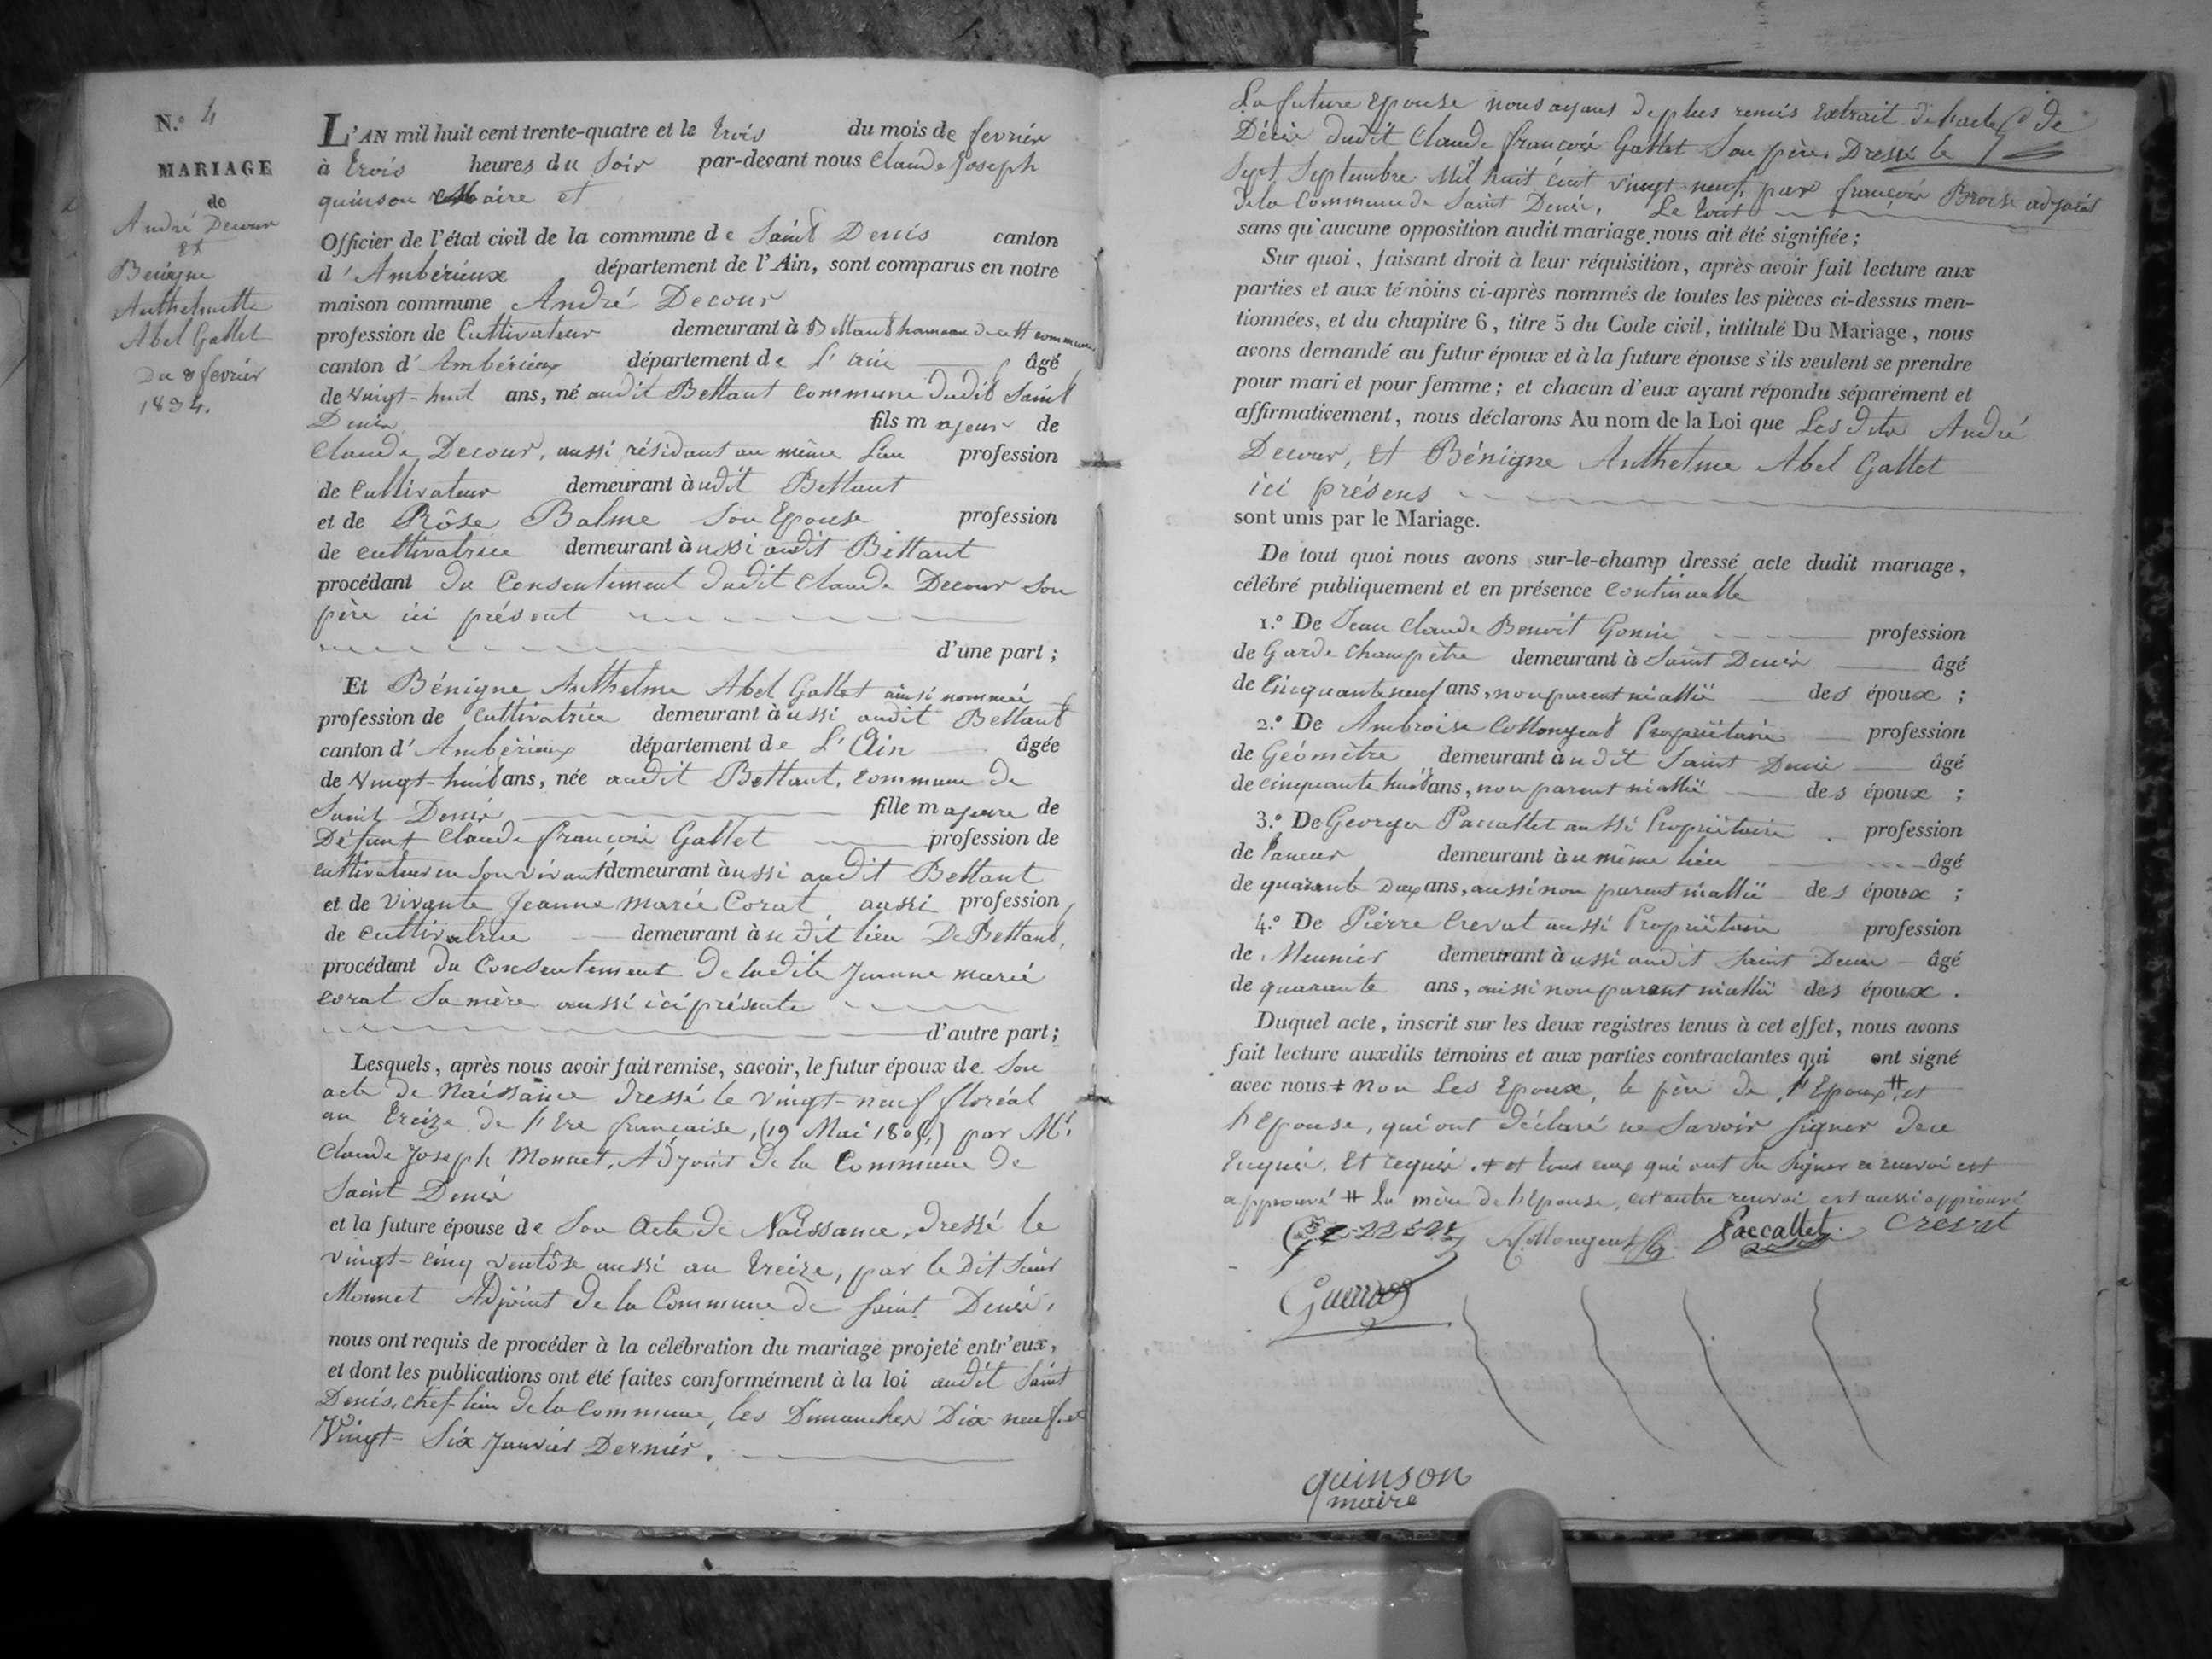 N.º 4
MARIAGE
de
André Decour
et
Benigne
Anthelmette
Abel Gallet
Du 8 fevrier
1834.
L'AN mil huit cent trente-quatre et le trois du mois de fevrier
à trois heures du Soir par-devant nous Claude Joseph
quinson Maire et
Officier de l'état civil de la commune de Saint Denis canton
d'Ambérieux département de l'Ain, sont comparus en notre
maison commune André Decour
profession de Cultivateur demeurant à Bettant hameau de cette commune
canton d'Ambérieux département de L'ain âgé
de vingt-huit ans, né audit Bettant commune dudit Saint
Denis fils majeur de
Claude Decour, aussi résidant au même Lieu profession
de Cultivateur demeurant àudit Bettant
et de Rôse Balme Son Epouse profession
de cultivatrice demeurant àussi audit Bettant
procédant du Consentement dudit Claude Decour Son
père ici présent
d'une part ;
Et Bénigne Anthelme Abel Gallet ainsi nommée
profession de Cultivatrice demeurant àussi audit Bettant
canton d'Ambérieux département de L'Ain âgée
de vingt-huit ans, née audit Bettant, commune de
Saint Denis fille majeure de
Défunt Claude françois Gallet profession de
cultivateur en son vivant demeurant àussi audit Bettant
et de vivante Jeanne Marie Corat aussi profession
de cultivatrice demeurant àudit lieu De Bettant,
procédant du Consentement de ladite Jeanne marie
corat Sa mère aussi ici présente
d'autre part ;
Lesquels, après nous avoir fait remise, savoir, le futur époux de Son
acte de Naissance dressé le vingt-neuf floréal
an treize de l'Ere française, (19 Mai 1805) par Mr.
Claude Joseph Monnet, Adjoint de la Commune de
Saint Denis
et la future épouse de Son Acte de Naissance, dressé le
vingt-cinq ventôse aussi an treize, par le Dit Sieur
Monnet Adjoint de la Commune de Saint Denis,
nous ont requis de procéder à la célébration du mariage projeté entr'eux,
et dont les publications ont été faites conformément à la loi audit Saint
Denis, chef lieu de la Commune, les Dimanches Dix-neuf et
Vingt-Six Janvier Dernier.
La future Epouse nous ayans de plus remis Extrait de l'acte de
Décès dudit Claude françois Gallet Son père. Dressé le
Sept Septembre Mil huit cent vingt neuf, par françois Brosse adjoint
de la Commune de Saint Denis, Le tout
sans qu'aucune opposition audit mariage nous ait été signifiée ;
Sur quoi, faisant droit à leur réquisition, après avoir fait lecture aux
parties et aux témoins ci-après nommés de toutes les pièces ci-dessus men-
tionnées, et du chapitre 6, titre 5 du Code civil, intitulé Du Mariage, nous
avons demandé au futur époux et à la future épouse s'ils veulent se prendre
pour mari et pour femme ; et chacun d'eux ayant répondu séparément et
affirmativement, nous déclarons Au nom de la Loi que Lesdits André
Decour, et Bénigne Anthelme Abel Gallet
ici présens
sont unis par le Mariage.
De tout quoi nous avons sur-le-champ dressé acte dudit mariage,
célébré publiquement et en présence Continuelle
1.º De Jean Claude Benoit Gonin profession
de Garde Champêtre demeurant à Saint Denis âgé
de Cinquante neuf ans, non parent ni allié des époux ;
2.º De Ambroise Collongeat Propriétaire profession
de Géomètre demeurant àudit Saint Denis âgé
de cinquante huit ans, non parent ni allié des époux ;
3.º De Georges Paccallet aussi Propriétaire profession
de Taneur demeurant àu même lieu âgé
de quarante deux ans, aussi non parent ni allié des époux ;
4.º De Piérre Crevat aussi Propriétaire profession
de Meunier demeurant àussi audit Saint Denis âgé
de quarante ans, aussi non parent ni allié des époux.
Duquel acte, inscrit sur les deux registres tenus à cet effet, nous avons
fait lecture auxdits témoins et aux parties contractantes qui ont signé
avec nous + non Les Epoux, le père de l'Epoux, # et
l'Epouse, qui ont déclaré ne Savoir Signer de ce
Enquis. Et requis. + et tous ceux qui ont su Signer ce renvoi est
approuvé # La mère de l'Epouse, cet autre renvoi est aussi approuvé
Collongeat Paccallet crevat
quinson
maire